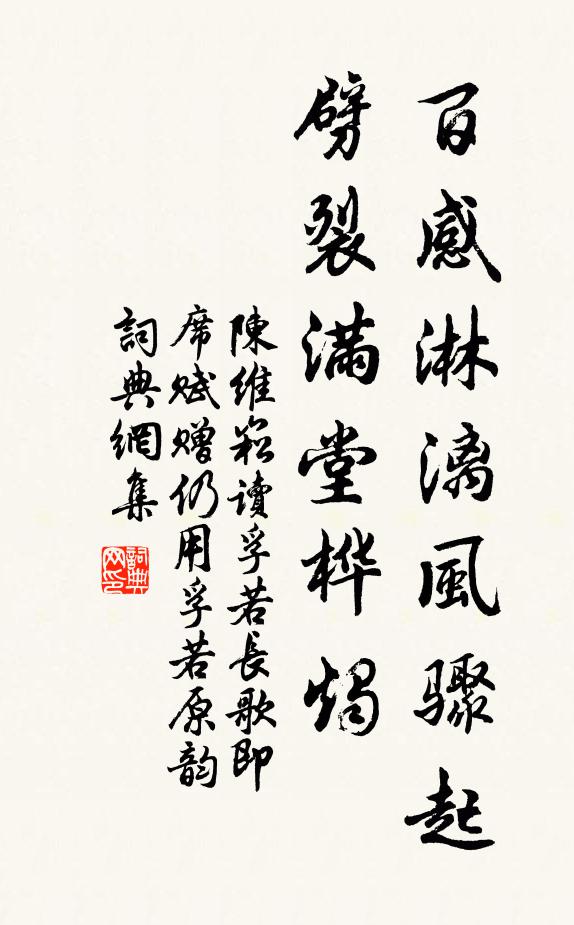 百感淋漓風驟起
劈裂满堂桦燭
陳維崧讀孚若長歌即
席赋贈仍用孚若原韵
詞典網集
詞典網印